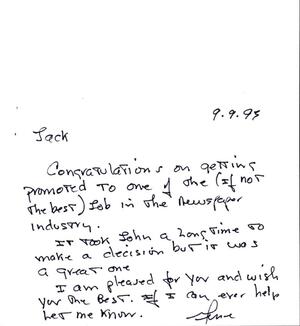 9.9.93
Jack
Congratulations on getting
promoted to one of the (If not
the best) Job in the Newspaper
industry.
It took John a long time to
make a decision but it was
a great one
I am pleased for you and wish
you the best. If I can ever help
Let me know.